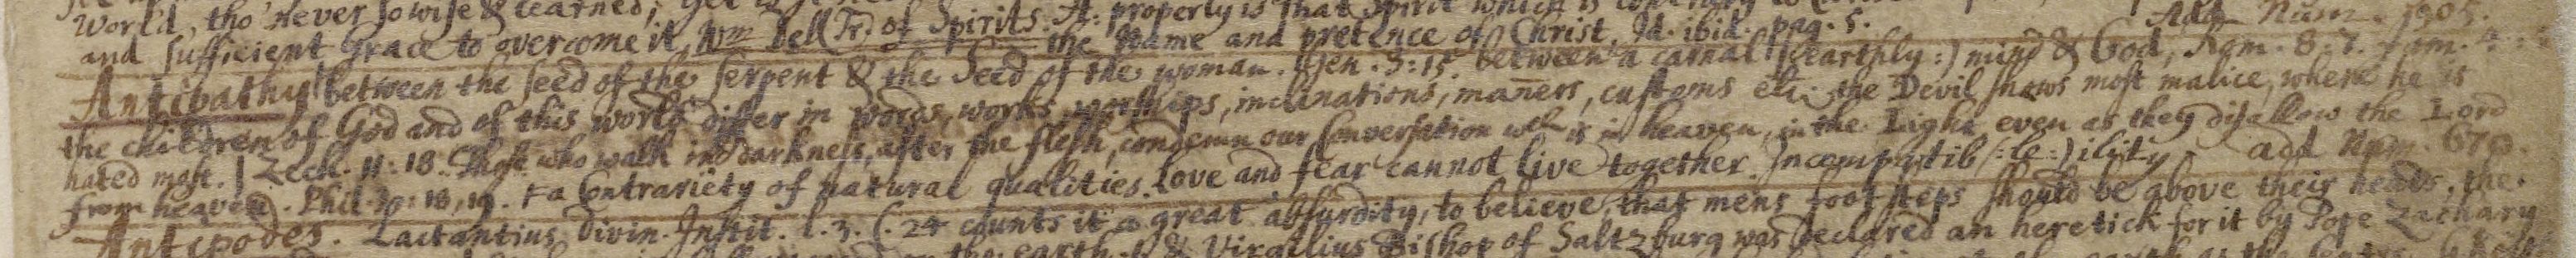 World, tho' never so wise & learned; yet is that Spirit which is
and sufficient Grace to overcome it, Wm Dell Tr. of Spirits. A: properly is
the Name and pretence of Christ. Id. ibid. pag. 5. Add Num. 1905.
Antipathy between the seed of the serpent & the Seed of the woman. Gen. 3:15. between a carnal (earthly:) mind & God, Rom. 8:7.
the children of God and of this world differ in words, works, worships, inclinations, maners, customs etc. the Devil shews most malice, where he is
hated most. | Zech. 11:18. Those who walk in darkness, after the flesh, condemn our Conversation wch is in heaven, in the Light, even as they disallow the Lord
from heaven. Phil. 3:18,19. a Contrariety of natural qualities. Love and fear cannot live together. Incompatib(:le:)ility add Num. 670.
Antipodes. Lactantius divin. Instit. l. 3. C. 24 counts it a great absurdity, to believe, that mens footsteps should be above their heads, the
the earth. & Virgilius Bishop of Saltzburg was declared an heretick for it by Pope Zachary